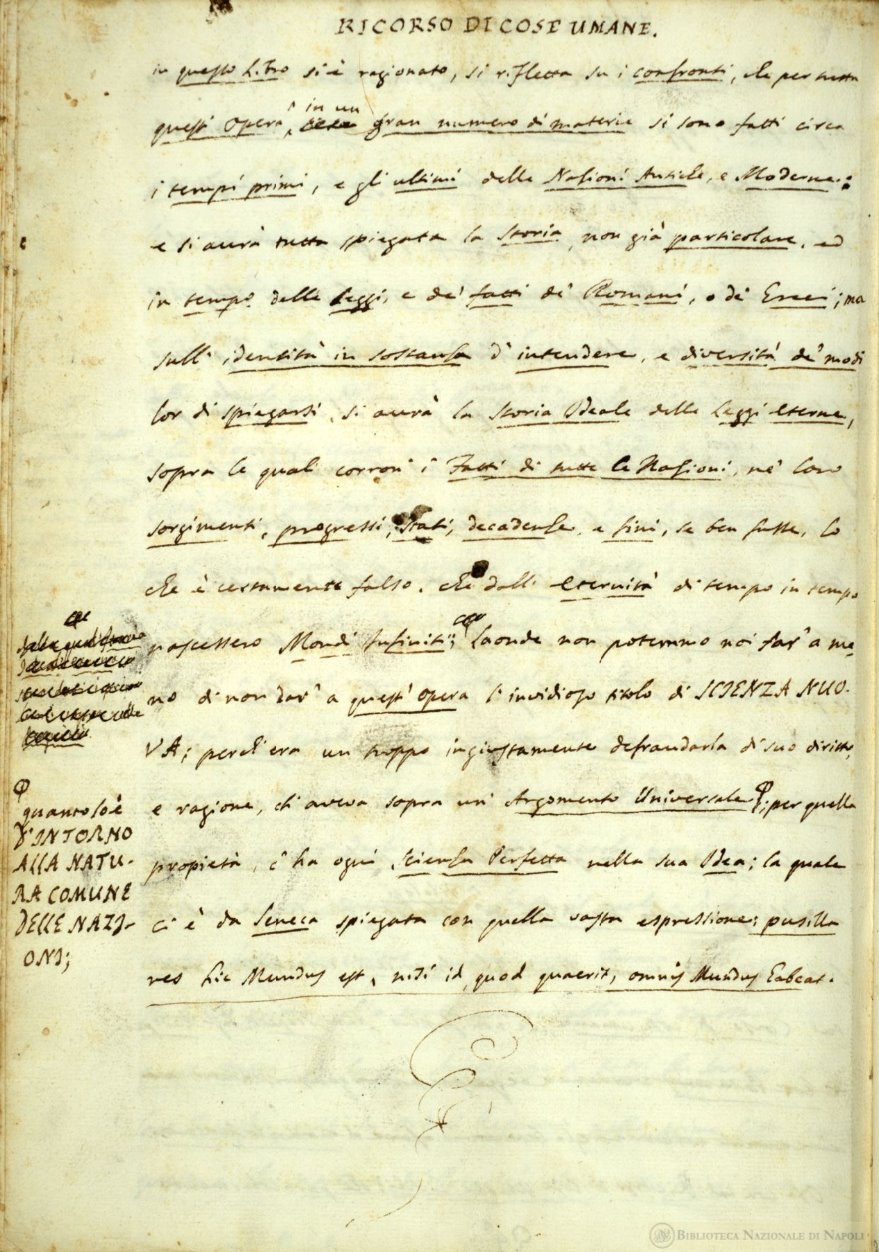 RICORSO DI COSE UMANE.
in questo Libro si è ragionato, si rifletta su i confronti, che per tutta
quest' Opera in un gran numero di materie si sono fatti circa
i tempi primi, e gli ultimi delle Nazioni Antiche, e Moderne:
e si avrà tutta spiegata la Storia, non già particolare, ed
in tempo delle Leggi, e de' fatti de' Romani, o de' Greci; ma
sull' identità in sostanza d' intendere, e diversità de' modi
lor di spiegarsi, si avrà la Storia Ideale delle Leggi eterne,
sopra le quali corron' i Fatti di tutte le Nazioni, ne' loro
sorgimenti, progressi, stati, decadenze, e fini, se ben fusse, lo
che è certamente falso, che dall' eternità di tempo in tempo
nascessero Mondi Infiniti; Laonde non potemmo noi far' a me
no di non dar' a quest' Opera l' invidioso titolo di SCIENZA NUO-
VA; perch' era un troppo ingiustamente defraudarla di suo diritto,
e ragione, ch' aveva sopra un' Argomento Universale; per quella
propietà, c' ha ogni Scienza Perfetta nella sua Idea; la quale
ci è da Seneca spiegata con quella vasta espressione; pusilla
res hic Mundus est, nisi id, quod quaerit, omnis Mundus habeat.
quanto lo è
D'INTORNO
ALLA NATU-
RA COMUNE
DELLE NAZI-
ONI;
BIBLIOTECA NAZIONALE DI NAPOLI